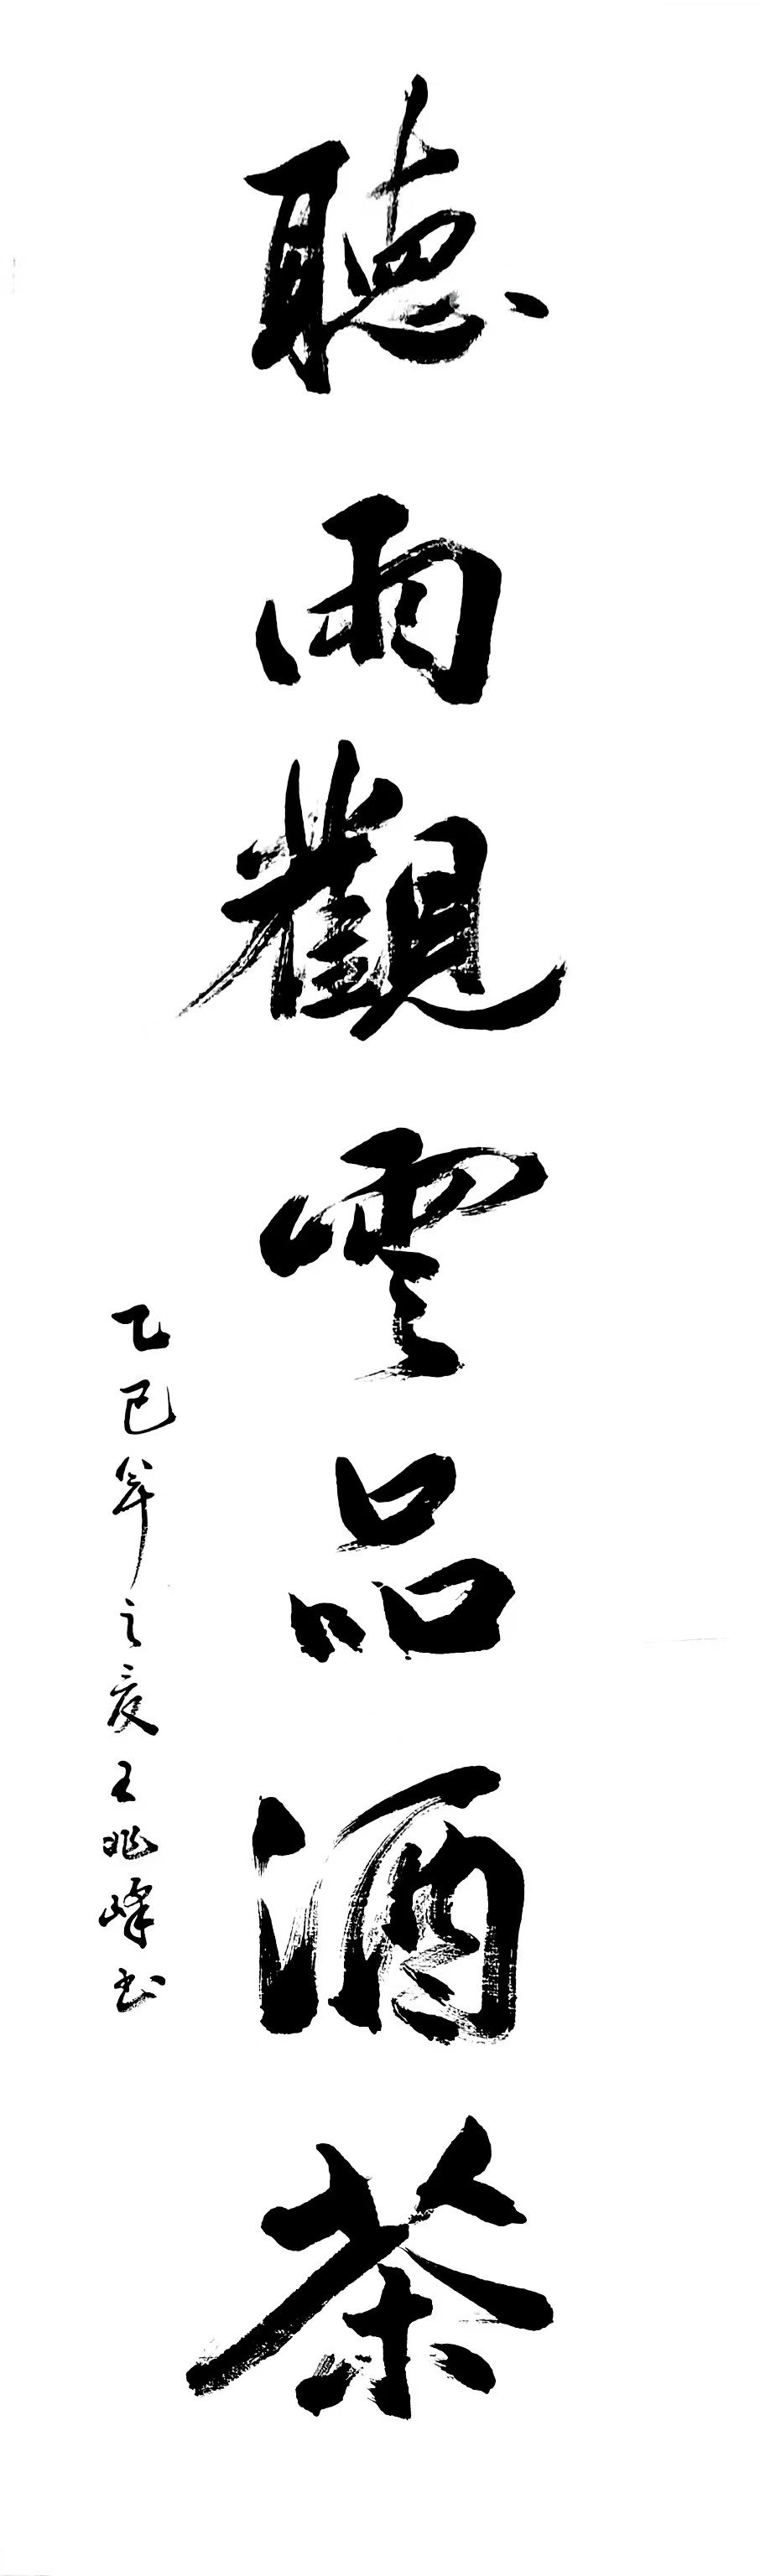 聽雨觀雲品酒茶
乙巳年之夏王兆峰书